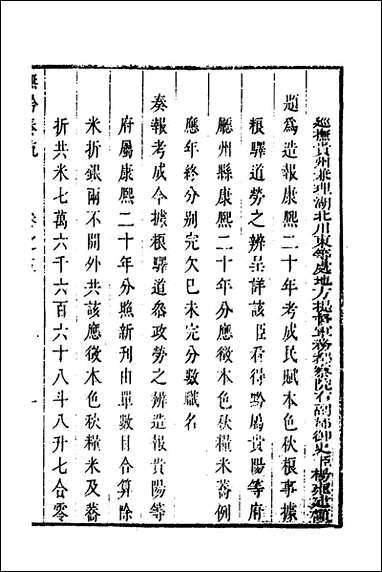 巡撫貴州兼理湖北川東等處地方提督軍務都察院右副都御史臣楊雍建謹
題為造報康熙二十年考成民賦本色秋糧事據
糧驛道勞之辨呈詳該臣看得黔屬貴陽等府
廳州縣康熙二十年分應徵本色秋糧米蕎例
應年終分别完欠已未完分數職名
奏報考成今據糧驛道叅政勞之辨造報貴陽等
府屬康熙二十年分照新刊由單數目合算除
米折銀兩不開外共該應徵本色秋糧米及蕎
折共米七萬六千六百六十八斗八升七合零
撫黔奏疏
卷之三
一